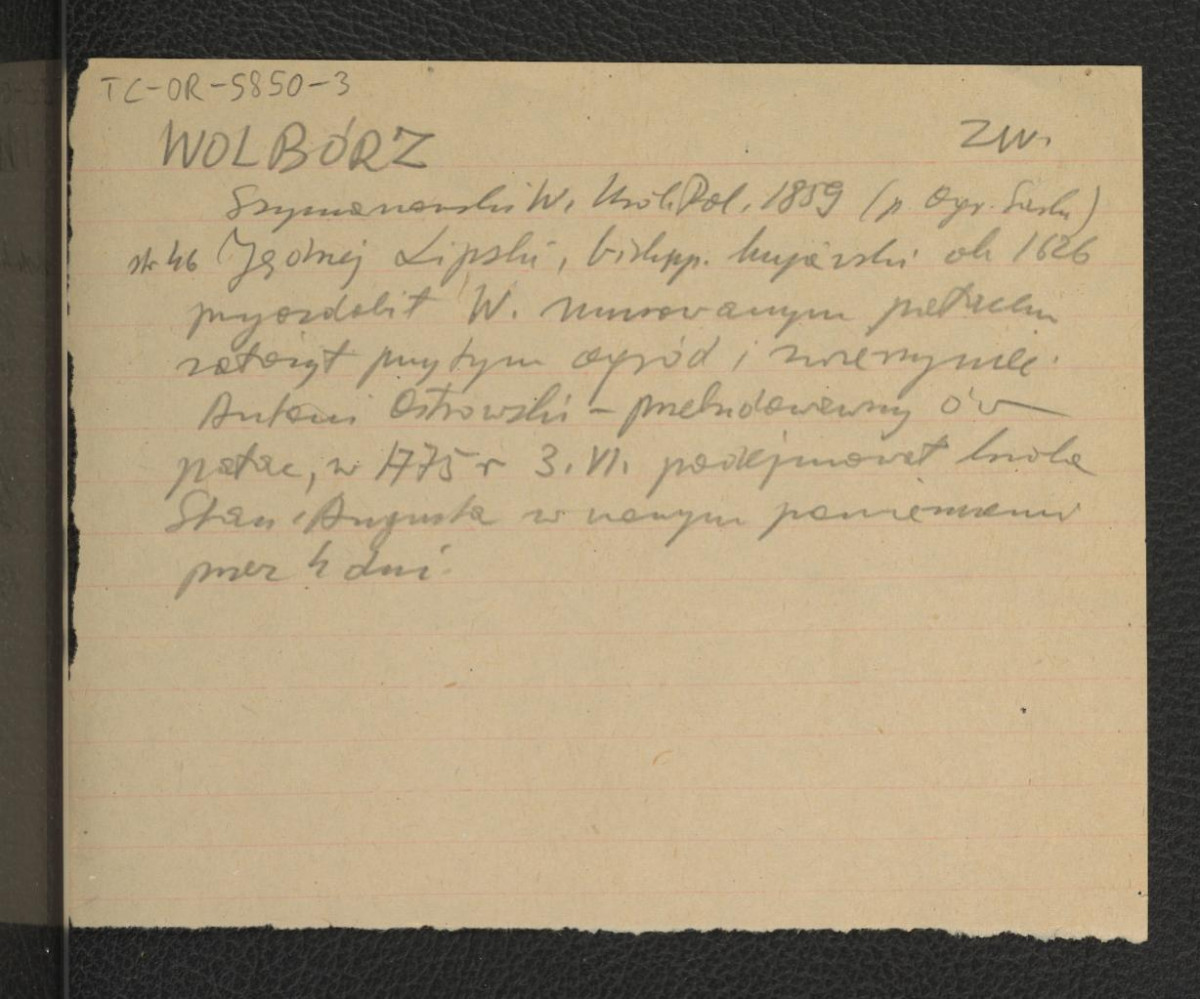 TC-OR-5850-3
WOLBÓRZ ZW.
Szymanowski W. Król. Pol. 1859 (p. Ogr. Saski)
str 46 Jędrzej Lipski, biskup kujawski ok 1626
przyozdobił W. murowanym pałacem
założył przy tym ogród i zwierzyniec.
Antoni Ostrowski – przebudowawszy ów
pałac, w 1775 r 3. VI. podejmował króla
Stan. Augusta w nowym pomieszkaniu
przez 4 dni.